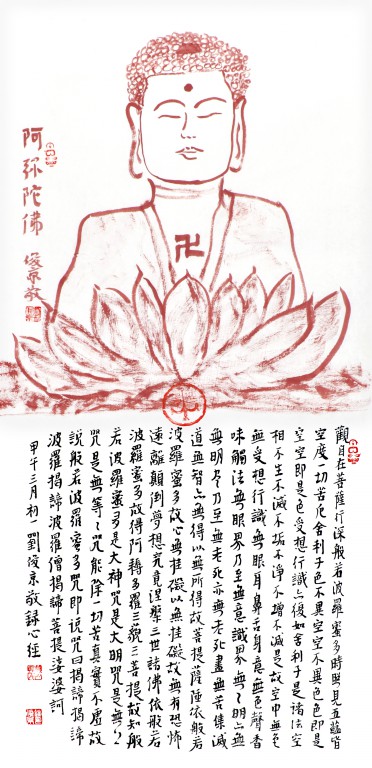 阿弥陀佛
俊京敬
觀自在菩薩行深般若波羅蜜多時照見五蘊皆
空度一切苦厄舍利子色不異空空不異色色即是
空空即是色受想行識亦復如舍利子是諸法空
相不生不滅不垢不淨不增不減是故空中無色
無受想行識無眼耳鼻舌身意無色聲香
味觸法無眼界乃至無意識界無々明亦無
無明尽乃至無老死亦無老死盡無苦集滅
道無智亦無得以無所得故菩提薩埵依般若
波羅蜜多故心無挂礙以無挂礙故無有恐怖
遠離顛倒夢想究竟涅槃三世諸佛依般若
波羅蜜多故得阿耨多羅三藐三菩提故知般
若波羅蜜多是大神咒是大明咒是無上
咒是無等々咒能除一切苦真實不虛故
說般若波羅蜜多咒即説咒曰揭諦揭諦
波羅揭諦波羅僧揭諦菩提娑婆訶
甲午三月初一劉俊京敬録心經